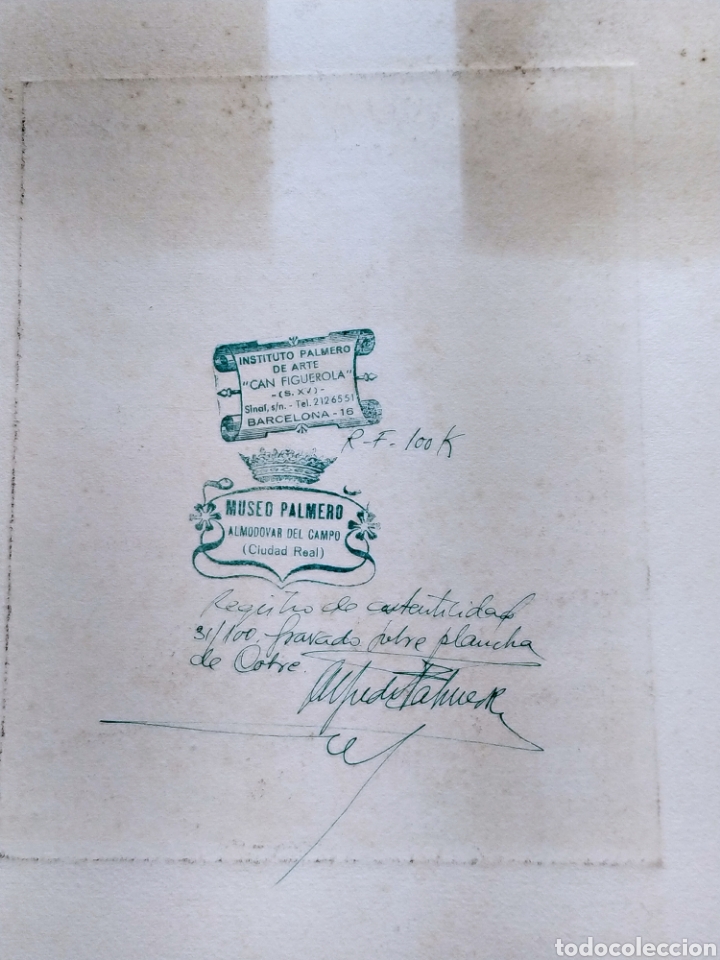 INSTITUTO PALMERO
DE ARTE
"CAN FIGUEROLA"
-(S. XV)-
Sinaí, s/n. - Tel. 2126551
BARCELONA - 16
R-F-100K
MUSEO PALMERO
ALMODOVAR DEL CAMPO
(Ciudad Real)
Registro de autenticidad
31/100. Gravado sobre plancha
de Cobre.
Alfredo Palmero
todocoleccion